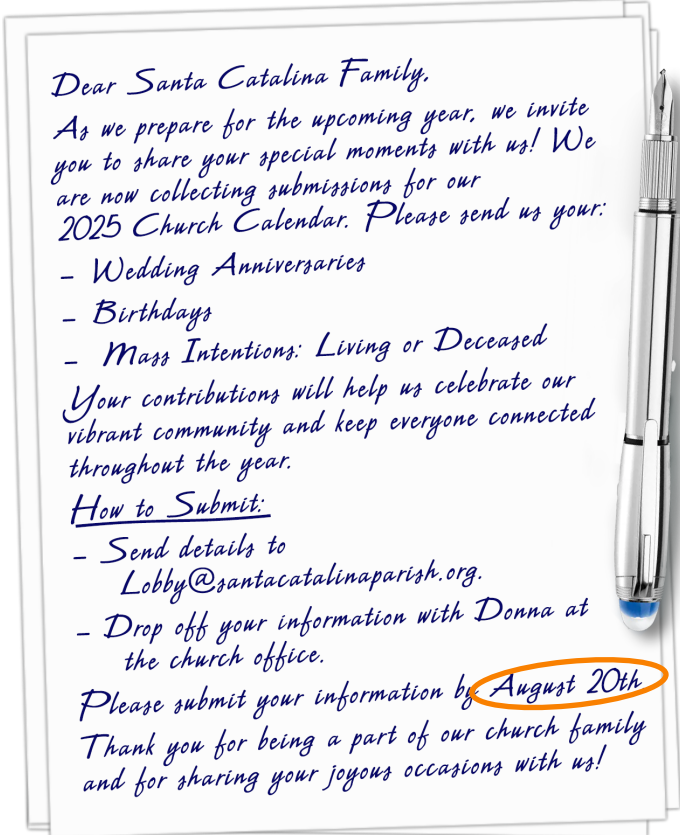 Dear Santa Catalina Family,
As we prepare for the upcoming year, we invite
you to share your special moments with us! We
are now collecting submissions for our
2025 Church Calendar. Please send us your:
- Wedding Anniversaries
- Birthdays
- Mass Intentions: Living or Deceased
Your contributions will help us celebrate our
vibrant community and keep everyone connected
throughout the year.
How to Submit:
- Send details to
Lobby@santacatalinaparish.org.
- Drop off your information with Donna at
the church office.
Please submit your information by August 20th
Thank you for being a part of our church family
and for sharing your joyous occasions with us!